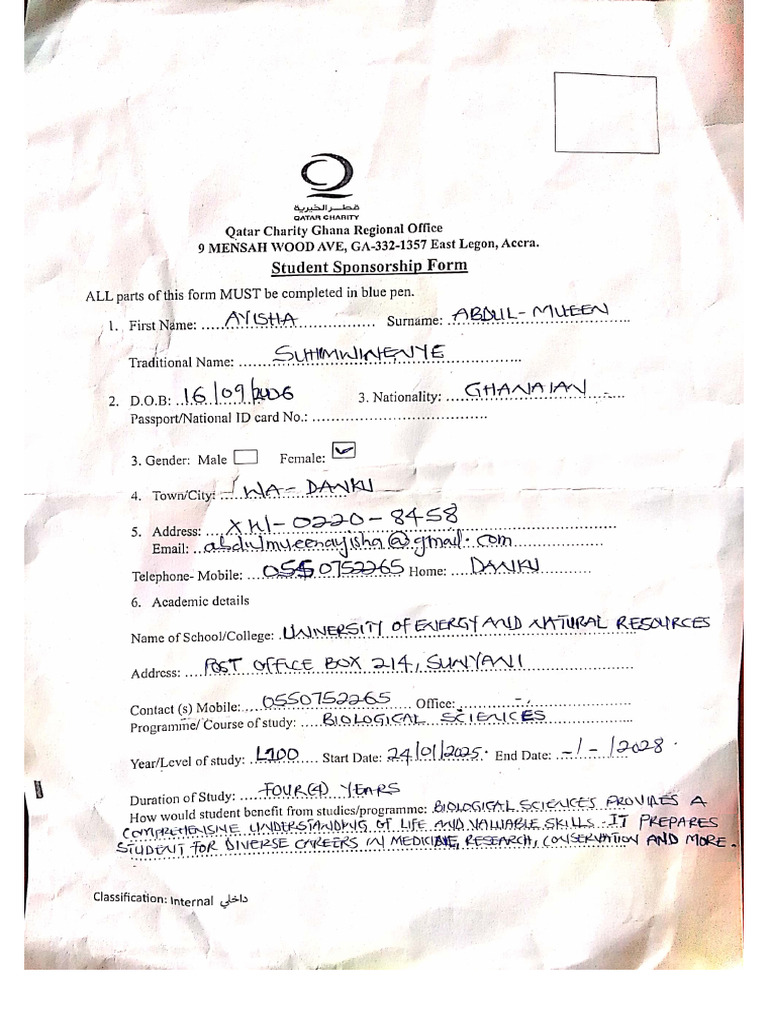 قطر الخيرية
QATAR CHARITY
Qatar Charity Ghana Regional Office
9 MENSAH WOOD AVE, GA-332-1357 East Legon, Accra.
Student Sponsorship Form
ALL parts of this form MUST be completed in blue pen.
1. First Name: AYISHA Surname: ABDUL-MUEEN
Traditional Name: SUHIMWINENYE
2. D.O.B: 16/09/2006 3. Nationality: GHANAIAN
Passport/National ID card No.:
3. Gender: Male Female: ✓
4. Town/City: WA-DANKU
5. Address: XW-0220-8458
Email: abdulmueenayisha@gmail.com
Telephone- Mobile: 0550752265 Home: DANKU
6. Academic details
Name of School/College: UNIVERSITY OF ENERGY AND NATURAL RESOURCES
Address: POST OFFICE BOX 214, SUNYANI
Contact (s) Mobile: 0550752265 Office: -,
Programme/ Course of study: BIOLOGICAL SCIENCES
Year/Level of study: L100 Start Date: 24/01/2025. End Date: -/-/2028.
Duration of Study: FOUR(4) YEARS
How would student benefit from studies/programme: BIOLOGICAL SCIENCES PROVIDES A
COMPREHENSIVE UNDERSTANDING OF LIFE AND VALUABLE SKILLS. IT PREPARES
STUDENT FOR DIVERSE CAREERS IN MEDICINE, RESEARCH, CONSERVATION AND MORE.
Classification: Internal داخلي